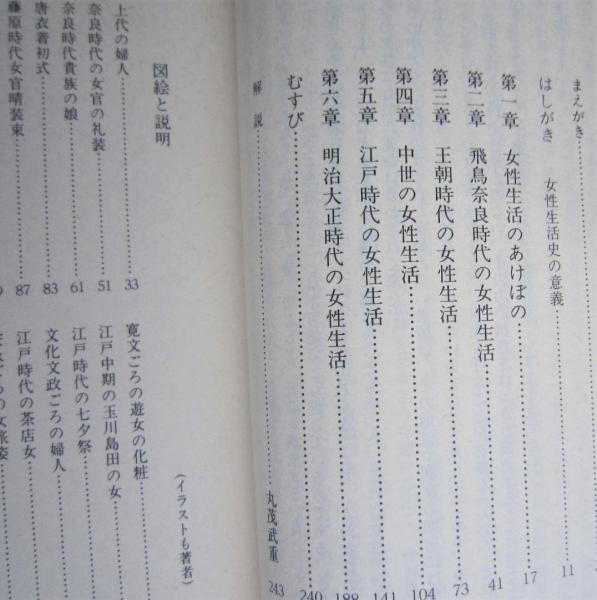 まえがき
はしがき 女性生活史の意義 11
第一章 女性生活のあけぼの 17
第二章 飛鳥奈良時代の女性生活 41
第三章 王朝時代の女性生活 73
第四章 中世の女性生活 104
第五章 江戸時代の女性生活 141
第六章 明治大正時代の女性生活 188
むすび 240
解説 丸茂武重 243
図絵と説明
(イラストも著者)
上代の婦人 33
奈良時代の女官の礼装 51
奈良時代貴族の娘 61
唐衣着初式 83
藤原時代女官晴装束 87
寛文ごろの遊女の化粧
江戸中期の玉川島田の女
江戸時代の七夕祭
文化文政ごろの婦人
江戸時代の茶店女